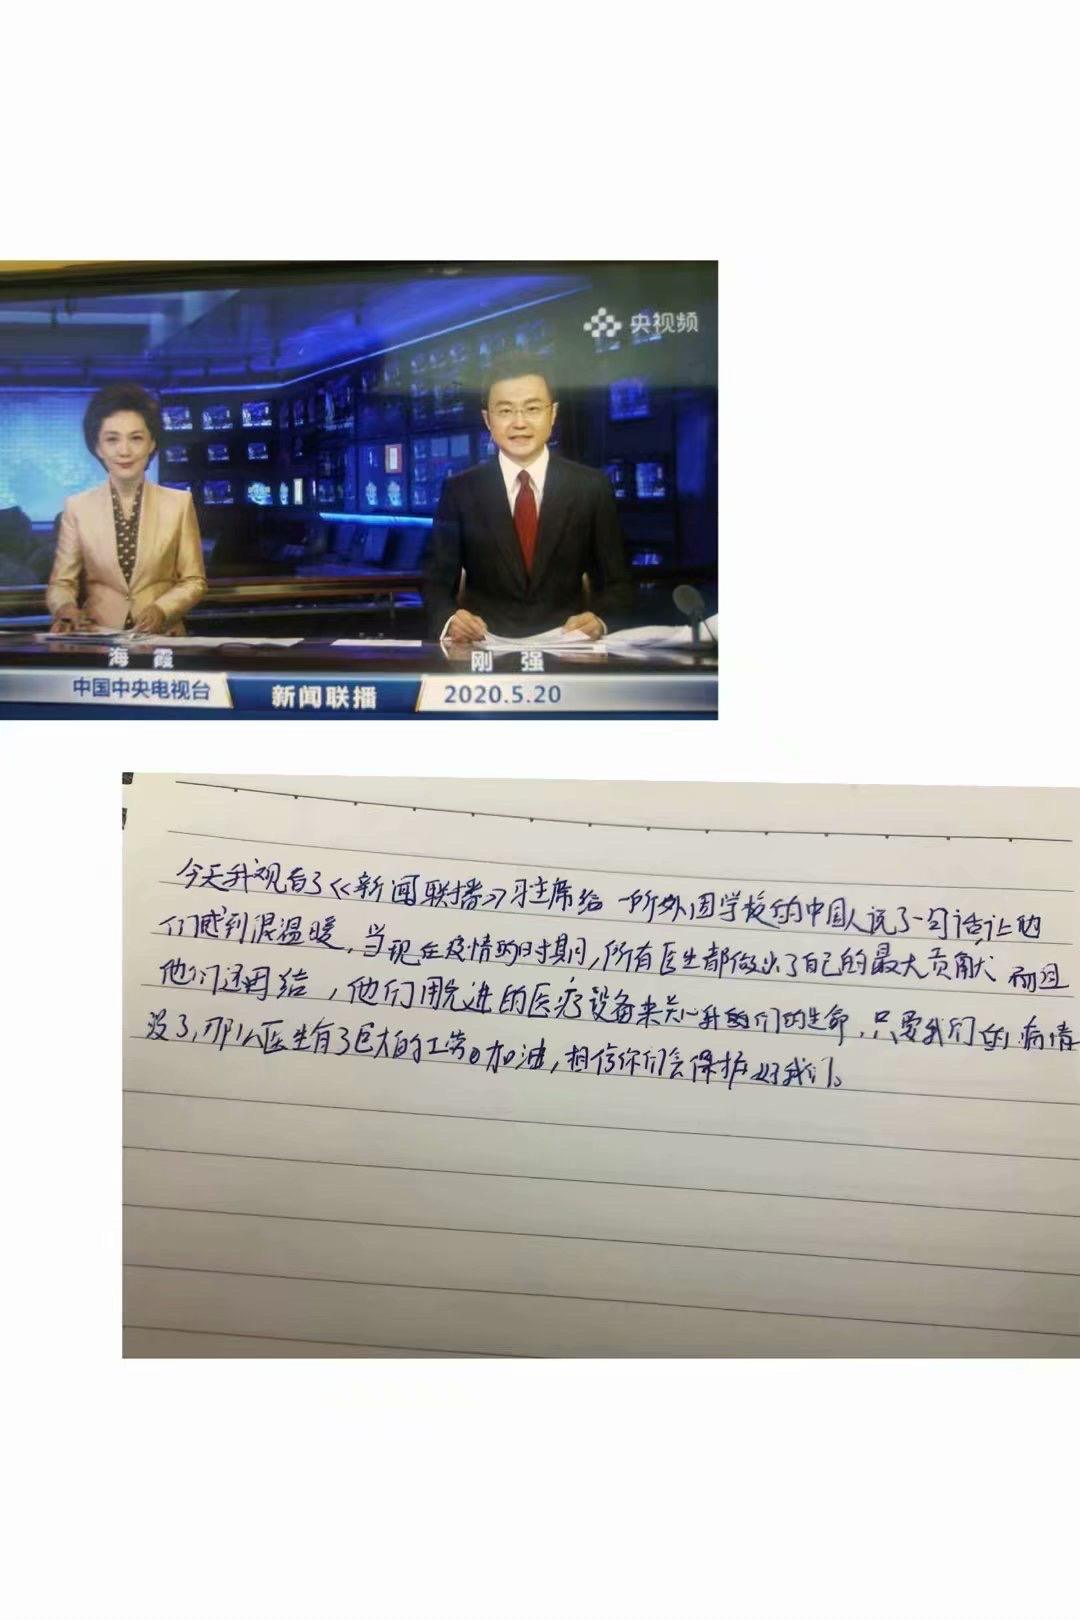 央视频
海 霞
刚 强
中国中央电视台
新闻联播
2020.5.20
今天我观看了《新闻联播》习主席给一所外国学校的中国人说了一句话让他
们感到很温暖,当现在疫情的时期,所有医生都做出了自己的最大贡献 而且
他们还团结,他们用先进的医疗设备来关心我们的生命,只要我们的病情
没了,那么医生有了巨大的功劳。加油,相信你们会保护好我们。